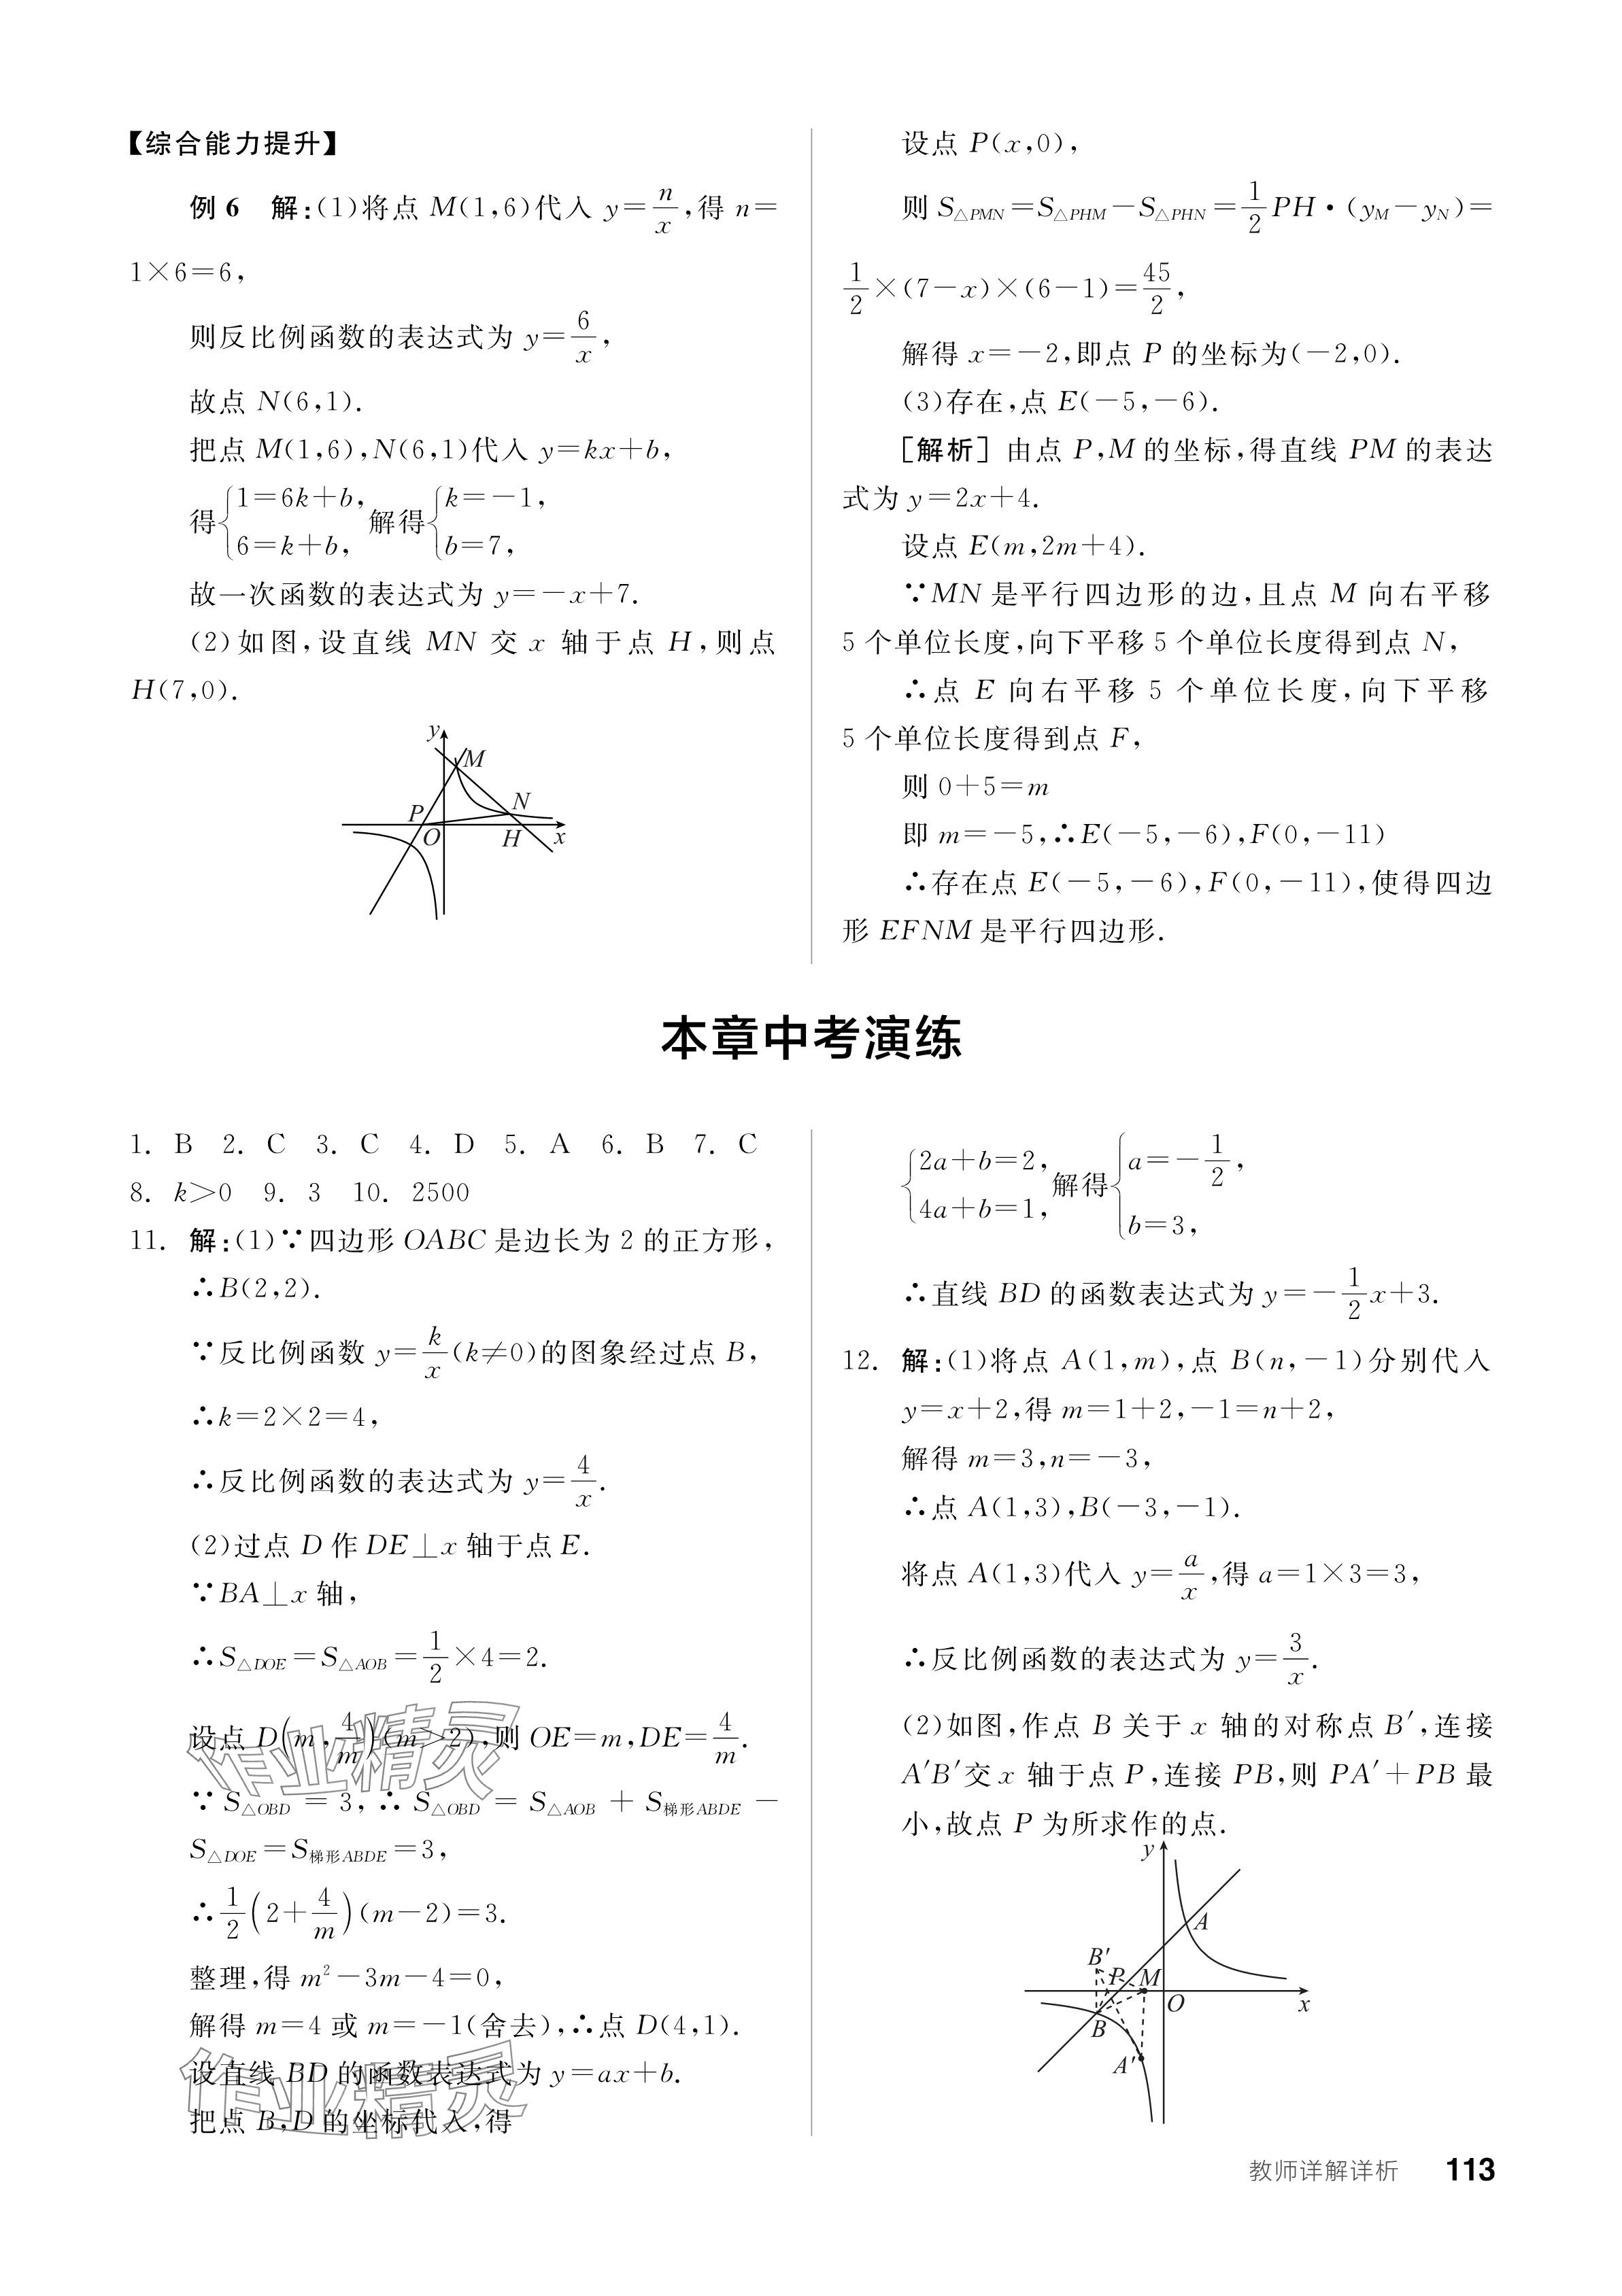 【综合能力提升】
例6 解:(1)将点 M(1,6)代入 y=n/x,得 n=
1×6=6,
则反比例函数的表达式为 y=6/x,
故点 N(6,1).
把点 M(1,6),N(6,1)代入 y=kx+b,
得{1=6k+b, 6=k+b, 解得{k=-1, b=7,
故一次函数的表达式为 y=-x+7.
(2)如图,设直线 MN 交 x 轴于点 H,则点
H(7,0).
y
M
N
P
O
H
x
设点 P(x,0),
则 S△PMN=S△PHM-S△PHN=1/2PH·(yM-yN)=
1/2×(7-x)×(6-1)=45/2,
解得 x=-2,即点 P 的坐标为(-2,0).
(3)存在,点 E(-5,-6).
[解析] 由点 P,M 的坐标,得直线 PM 的表达
式为 y=2x+4.
设点 E(m,2m+4).
∵MN 是平行四边形的边,且点 M 向右平移
5 个单位长度,向下平移 5 个单位长度得到点 N,
∴点 E 向右平移 5 个单位长度,向下平移
5 个单位长度得到点 F,
则 0+5=m
即 m=-5,∴E(-5,-6),F(0,-11)
∴存在点 E(-5,-6),F(0,-11),使得四边
形 EFNM 是平行四边形.
本章中考演练
1. B 2. C 3. C 4. D 5. A 6. B 7. C
8. k>0 9. 3 10. 2500
11. 解:(1)∵四边形 OABC 是边长为 2 的正方形,
∴B(2,2).
∵反比例函数 y=k/x(k≠0)的图象经过点 B,
∴k=2×2=4,
∴反比例函数的表达式为 y=4/x.
(2)过点 D 作 DE⊥x 轴于点 E.
∵BA⊥x 轴,
∴S△DOE=S△AOB=1/2×4=2.
设点 D(m,4/m)(m>2),则 OE=m,DE=4/m.
∵S△OBD=3,∴S△OBD=S△AOB+S梯形ABDE-
S△DOE=S梯形ABDE=3,
∴1/2(2+4/m)(m-2)=3.
整理,得 m²-3m-4=0,
解得 m=4 或 m=-1(舍去),∴点 D(4,1).
设直线 BD 的函数表达式为 y=ax+b.
把点 B,D 的坐标代入,得
作业精灵
作业精灵
{2a+b=2, 4a+b=1, 解得{a=-1/2, b=3,
∴直线 BD 的函数表达式为 y=-1/2x+3.
12. 解:(1)将点 A(1,m),点 B(n,-1)分别代入
y=x+2,得 m=1+2,-1=n+2,
解得 m=3,n=-3,
∴点 A(1,3),B(-3,-1).
将点 A(1,3)代入 y=a/x,得 a=1×3=3,
∴反比例函数的表达式为 y=3/x.
(2)如图,作点 B 关于 x 轴的对称点 B′,连接
A′B′交 x 轴于点 P,连接 PB,则 PA′+PB 最
小,故点 P 为所求作的点.
y
A
B′
P
M
O
x
B
A′
教师详解详析 113